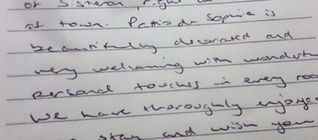 of Sisteron, right in
of town. Patio de Sophie is
beautifully decorated and
very welcoming with wonderful
personal touches in every roo
We have thoroughly enjoye
stay and wish you